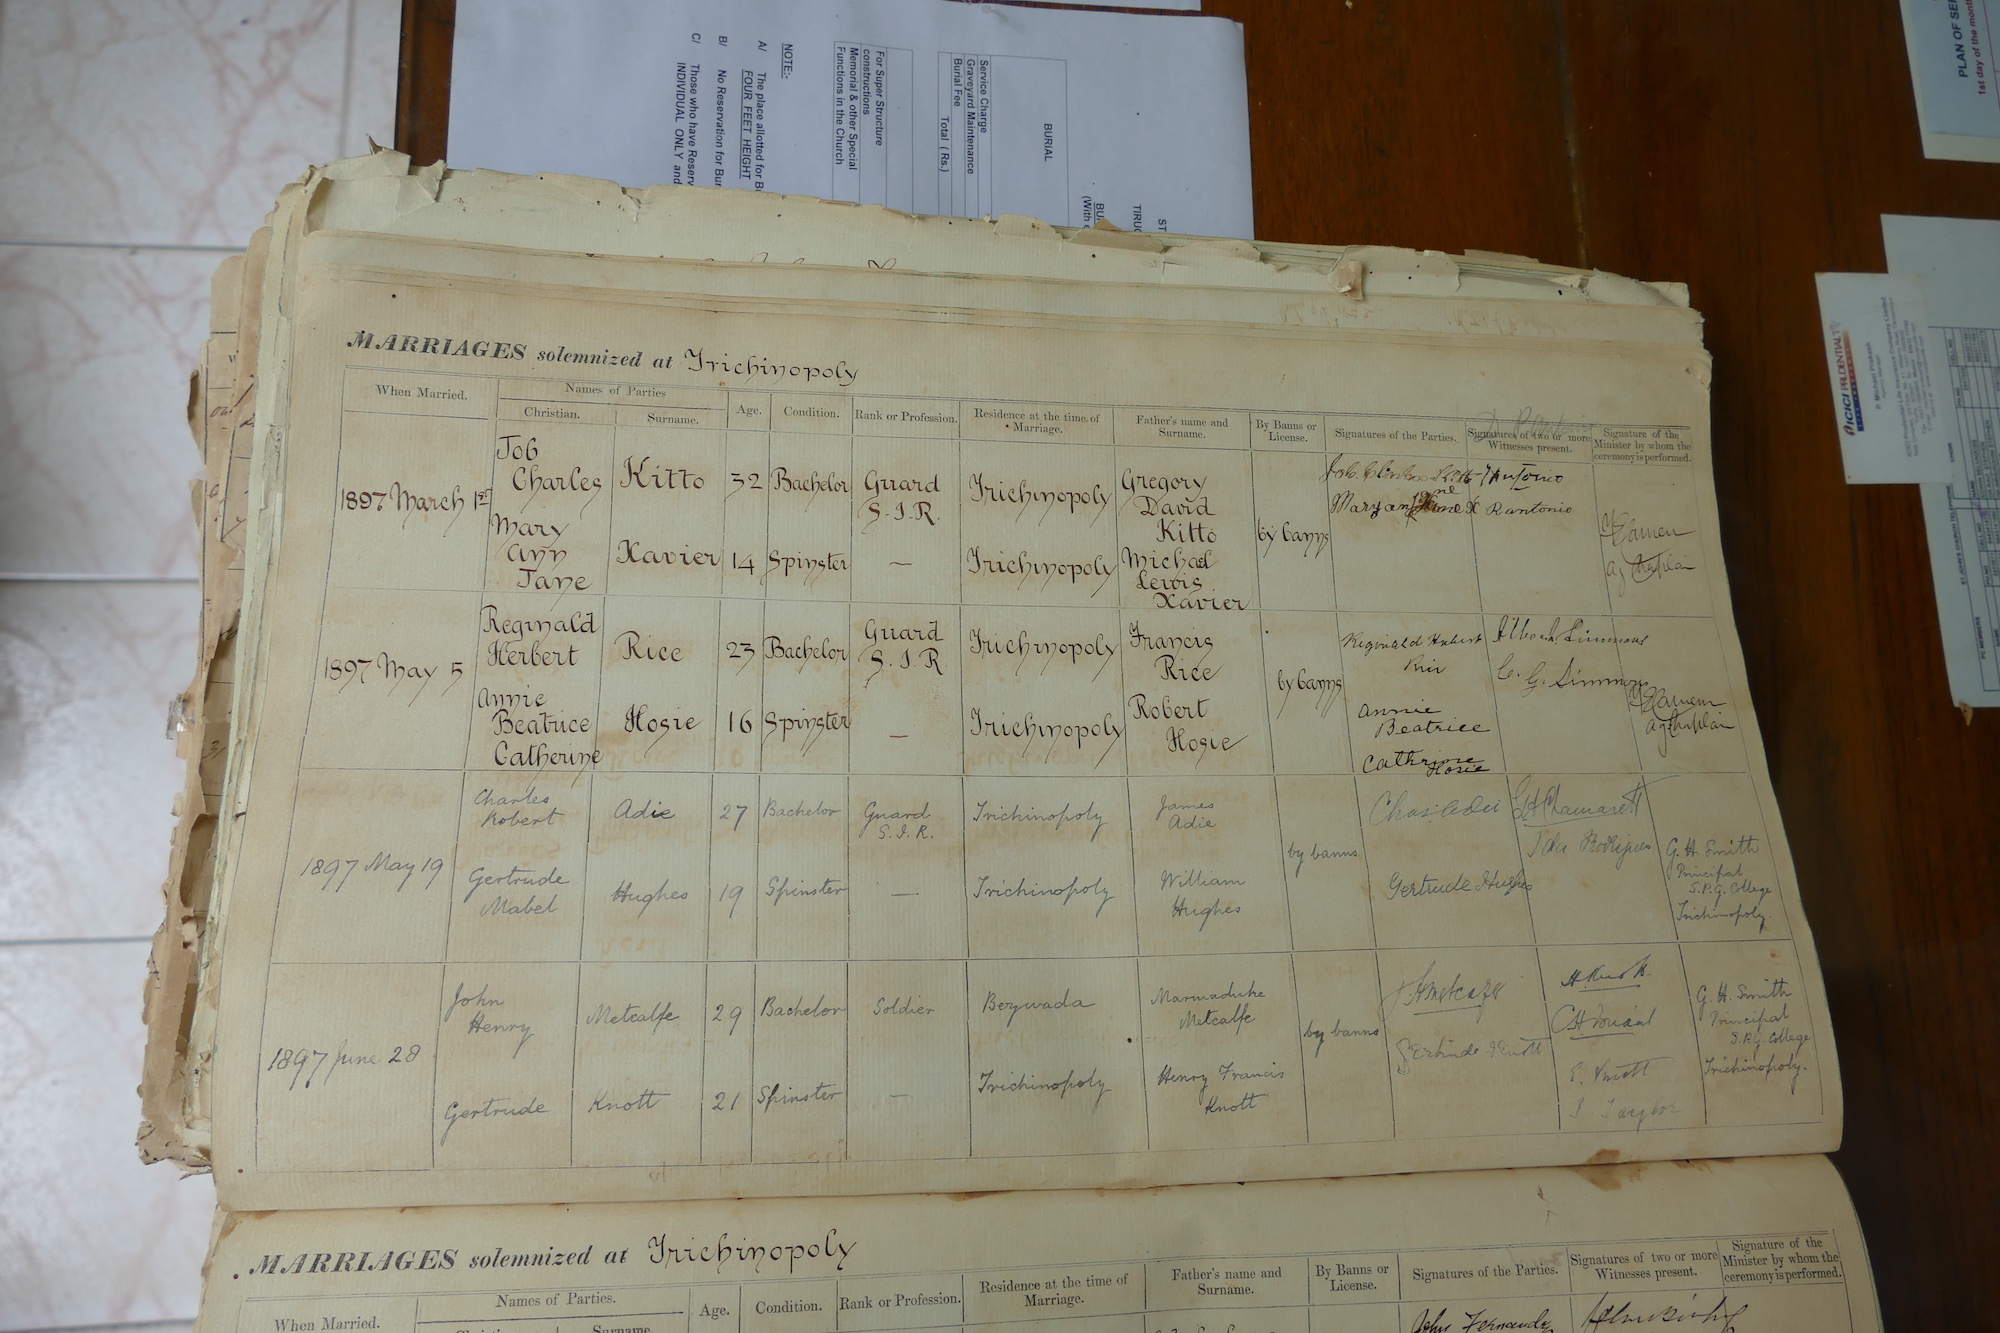 BURIAL
Service Charge
Graveyard Maintenance
Burial Fee
Total ( Rs.)
For Super Structure
constructions
Memorial & other Special
Functions in the Church
NOTE:-
A/ The place allotted for
FOUR FEET HEIGHT
B/ No Reservation for
C/ Those who have
INDIVIDUAL ONLY and
PLAN OF
1st day of the month
ICICI PRUDENTIAL
P. Michael Prakash
MARRIAGES solemnized at Trichinopoly
When Married.
Names of Parties
Christian.
Surname.
Age.
Condition.
Rank or Profession.
Residence at the time of Marriage.
Father's name and Surname.
By Banns or License.
Signatures of the Parties.
Signatures of two or more Witnesses present.
Signature of the Minister by whom the ceremony is performed.
1897 March 1st
Job
Charles
Kitto
32
Bachelor
Guard
S.I.R.
Trichinopoly
Gregory
David
Kitto
by banns
Antonio
R antonio
Mary
Ann
Jane
Xavier
14
Spinster
—
Trichinopoly
Michael
Lewis
Xavier
Mary an Jane X
Ag Chaplain
1897 May 5
Reginald
Herbert
Rice
23
Bachelor
Guard
S.I.R.
Trichinopoly
Francis
Rice
by banns
Reginald Hubert
Rice
Simmons
C. G. Simmons
Annie
Beatrice
Catherine
Hosie
16
Spinster
—
Trichinopoly
Robert
Hosie
Annie
Beatrice
Cathrine
Hosie
Ag Chaplain
1897 May 19
Charles
Robert
Adie
27
Bachelor
Guard
S.I.R.
Trichinopoly
James
Adie
by banns
Chas. Adie
John Rodrigues
Gertrude
Mabel
Hughes
19
Spinster
—
Trichinopoly
William
Hughes
Gertrude Hughes
G. H. Smith
Principal
S.P.G. College
Trichinopoly.
1897 June 28
John
Henry
Metcalfe
29
Bachelor
Soldier
Bezwada
Marmaduke
Metcalfe
by banns
J H Metcalfe
Gertrude
Knott
21
Spinster
—
Trichinopoly
Henry Francis
Knott
Gertrude Knott
E. Knott
Taylor
G. H. Smith
Principal
S.P.G. College
Trichinopoly.
MARRIAGES solemnized at Trichinopoly
When Married.
Names of Parties.
Christian
Surname
Age.
Condition.
Rank or Profession.
Residence at the time of Marriage.
Father's name and Surname.
By Banns or License.
Signatures of the Parties.
Signatures of two or more Witnesses present.
Signature of the Minister by whom the ceremony is performed.
John Fernandez